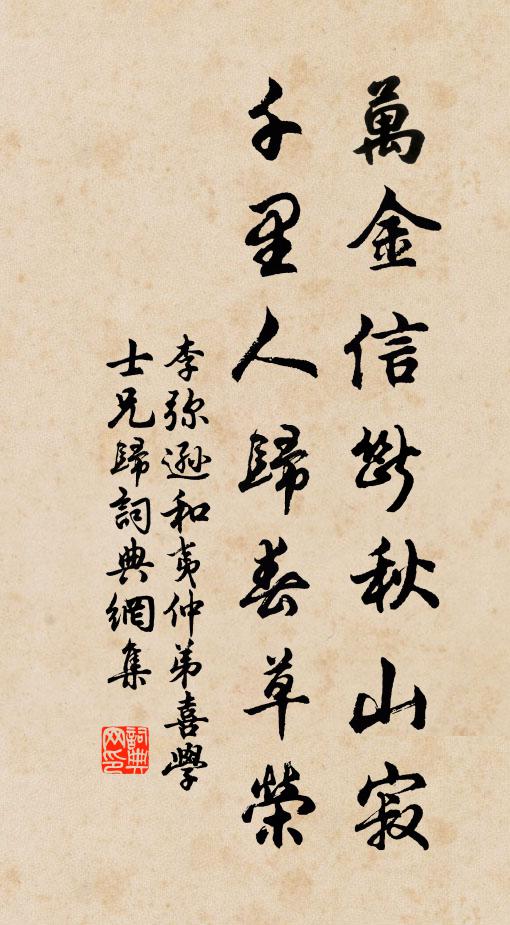 萬金信斷秋山寂
千里人歸春草榮
李弥遜和夷仲弟喜學
士兄歸詞典網集
詞典
网印